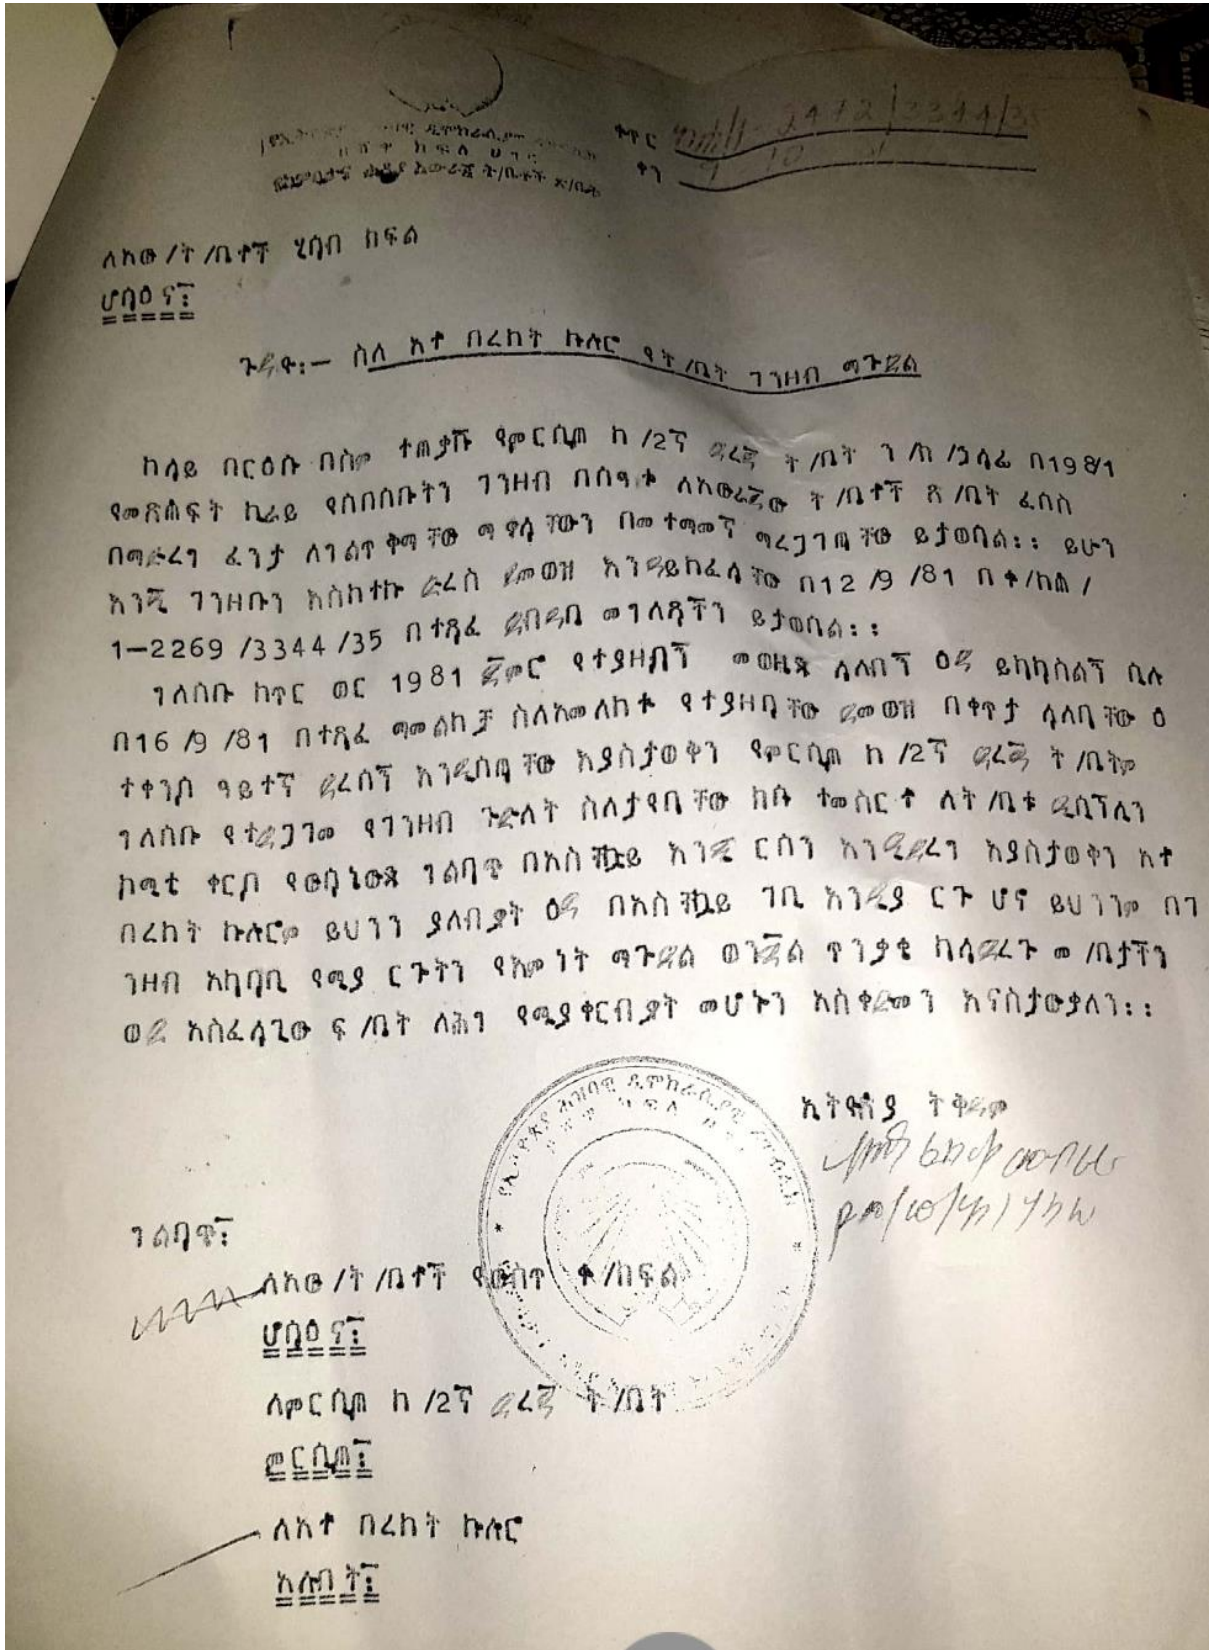 ቁጥር 2472/3344/35
ቀን 9 10
ለአው/ት/ቤቶች ሂሳብ ክፍል
ሆሳዕና፤
ጉዳዩ፡— ስለ አቶ በረከት ኩሉሮ የት/ቤት ገንዘብ ማጉደል
ከላይ በርዕሱ በስም ተጠቃሹ የሞርሲጦ ከ/2ኛ ደረጃ ት/ቤት ን/ጠ/ኃላፊ በ1981
የመጽሐፍት ኪራይ የሰበሰቡትን ገንዘብ በሰዓቱ ለአውራጃው ት/ቤቶች ጽ/ቤት ፈሰስ
በማድረግ ፈንታ ለግልጥ ቅማቸው ማዋላቸውን በመተማመኛ ማረጋገጣቸው ይታወሳል፡፡ ይሁን
እንጂ ገንዘቡን እስከተኩ ድረስ ደመወዝ እንዳይከፈላቸው በ12/9/81 በቀ/ከጠ/
1—2269/3344/35 በተጻፈ ደብዳቤ መግለጻችን ይታወሳል፡፡
ገለሰቡ ከጥር ወር 1981 ጀምሮ የተያዘብኝ መወዜጽ ላለብኝ ዕዳ ይካካስልኝ ሲሉ
በ16/9/81 በተጻፈ ማመልከቻ ስለአመለከቱ የተያዘባቸው ደመወዝ በቀጥታ ላለባቸው ዕ
ተቀንሶ ዓይተኛ ደረሰኝ እንዲሰጣቸው እያስታወቅን የሞርሲጦ ከ/2ኛ ደረጃ ት/ቤትም
ገለሰቡ የተደጋገመ የገንዘብ ጉድለት ስለታየባቸው ከሱ ተመስርቶ ለት/ቤቱ ዲስፕሊን
ኮሚቴ ቀርቦ የውሳኔውጽ ግልባጭ በአስቸኳይ እንዲ ርሰን እንዲደረግ እያስታወቅን አቶ
በረከት ኩሉሮም ይህንን ያለብዎት ዕዳ በአስቸኳይ ገቢ እንዲያ ርጉ ሆኖ ይህንንም በገ
ንዘብ አካባቢ የሚያ ርጉትን የእምነት ማጉደል ወንጀል ጥንቃቄ ካላደረጉ መ/ቤታችን
ወደ አስፈላጊው ፍ/ቤት ለሕግ የሚያቀርብዎት መሆኑን አስቀድመን እናስታውቃለን፡፡
ኢትዮጵያ ትቅደም
የኢትዮጵያ ሕዝባዊ ዲሞክራሲያዊ ሪፑብሊክ
ግልባጭ፤
ለአው/ት/ቤቶች የውስጥ ቀ/ክፍል
ሆሳዕና፤
ለሞርሲጦ ከ/2ኛ ደረጃ ት/ቤት
ሞርሲጦ፤
ለአቶ በረከት ኩሉሮ
አሉበት፤